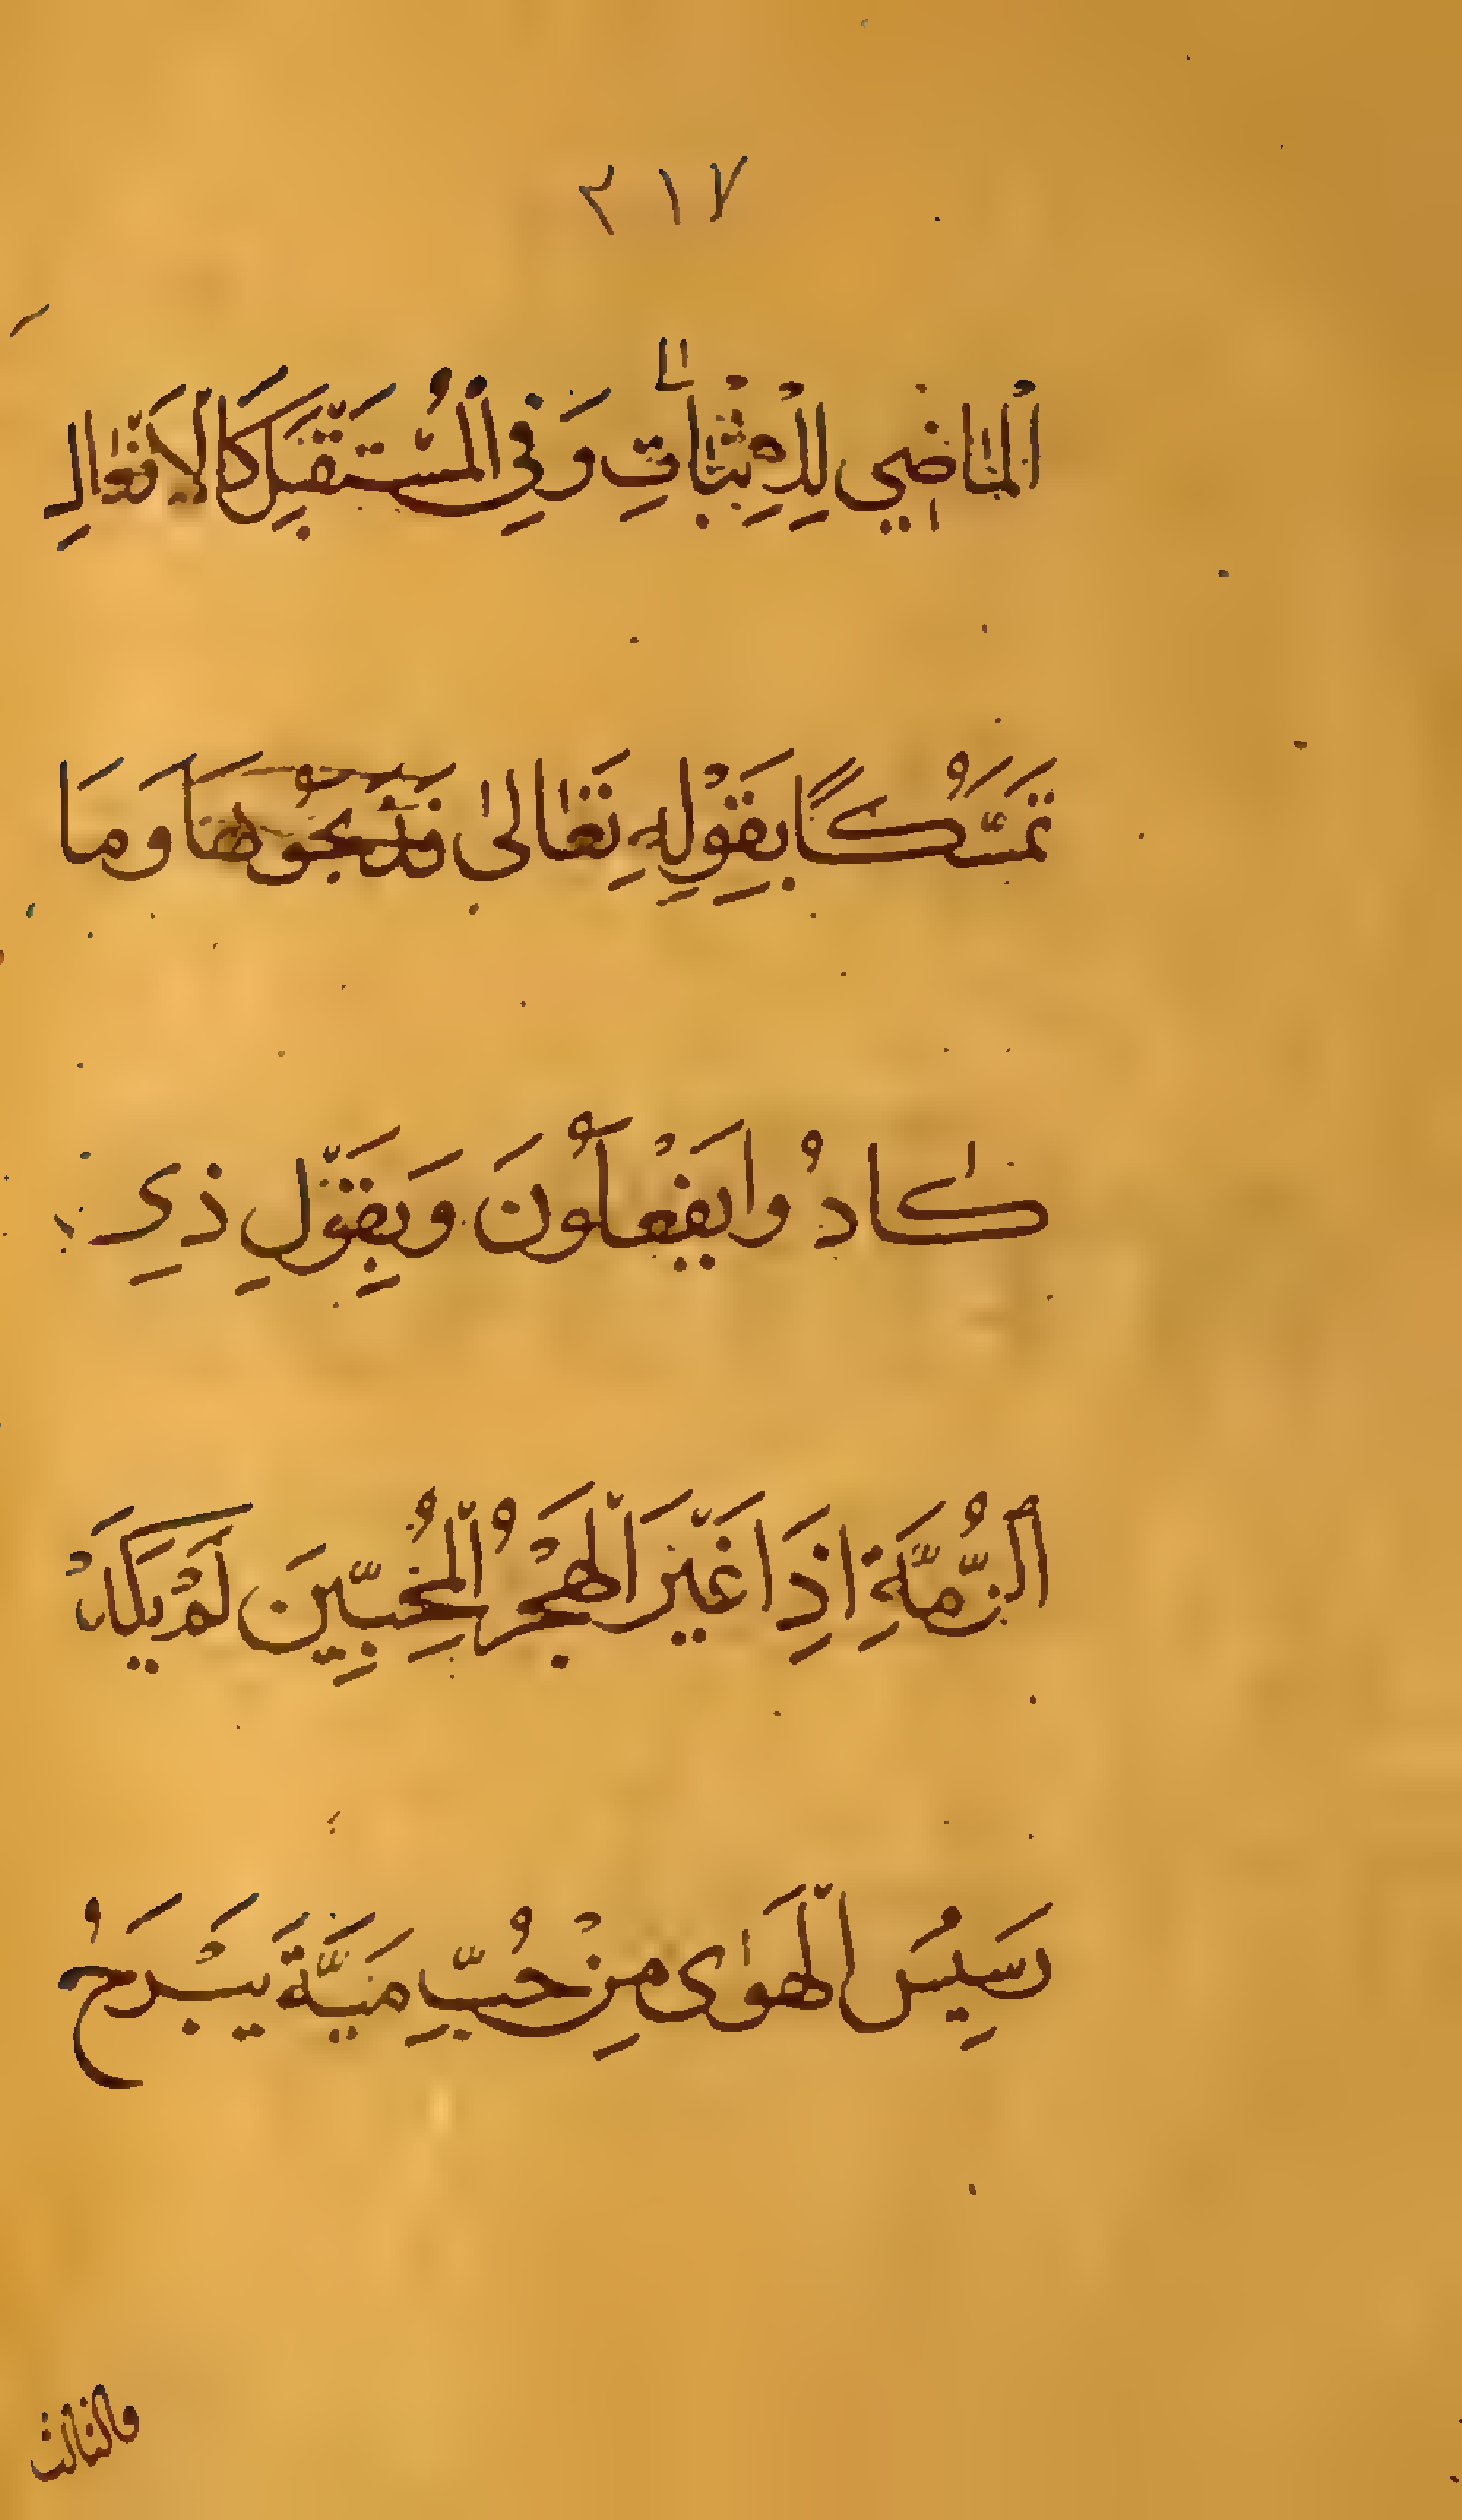 ٣١٧
اَلْمَاضِي لِلْإِثْبَاتِ وَفِي الْمُسْتَقْبَلِ كَالْاَفْعَالِ
تَمَسُّكًا بِقَوْلِهِ تَعَالٰى فَذَبَحُوْهَا وَمَا
كَادُوا يَفْعَلُونَ وَبِقَوْلِ ذِي
الرُّمَّةِ اِذَا غَيَّرَ الْهَجْرُ الْمُحِبِّينَ لَمْ يَكَدْ
رَسِيسُ الْهَوٰى مِنْ حُبِّ مَيَّةَ يَبْرَحُ
والثالث